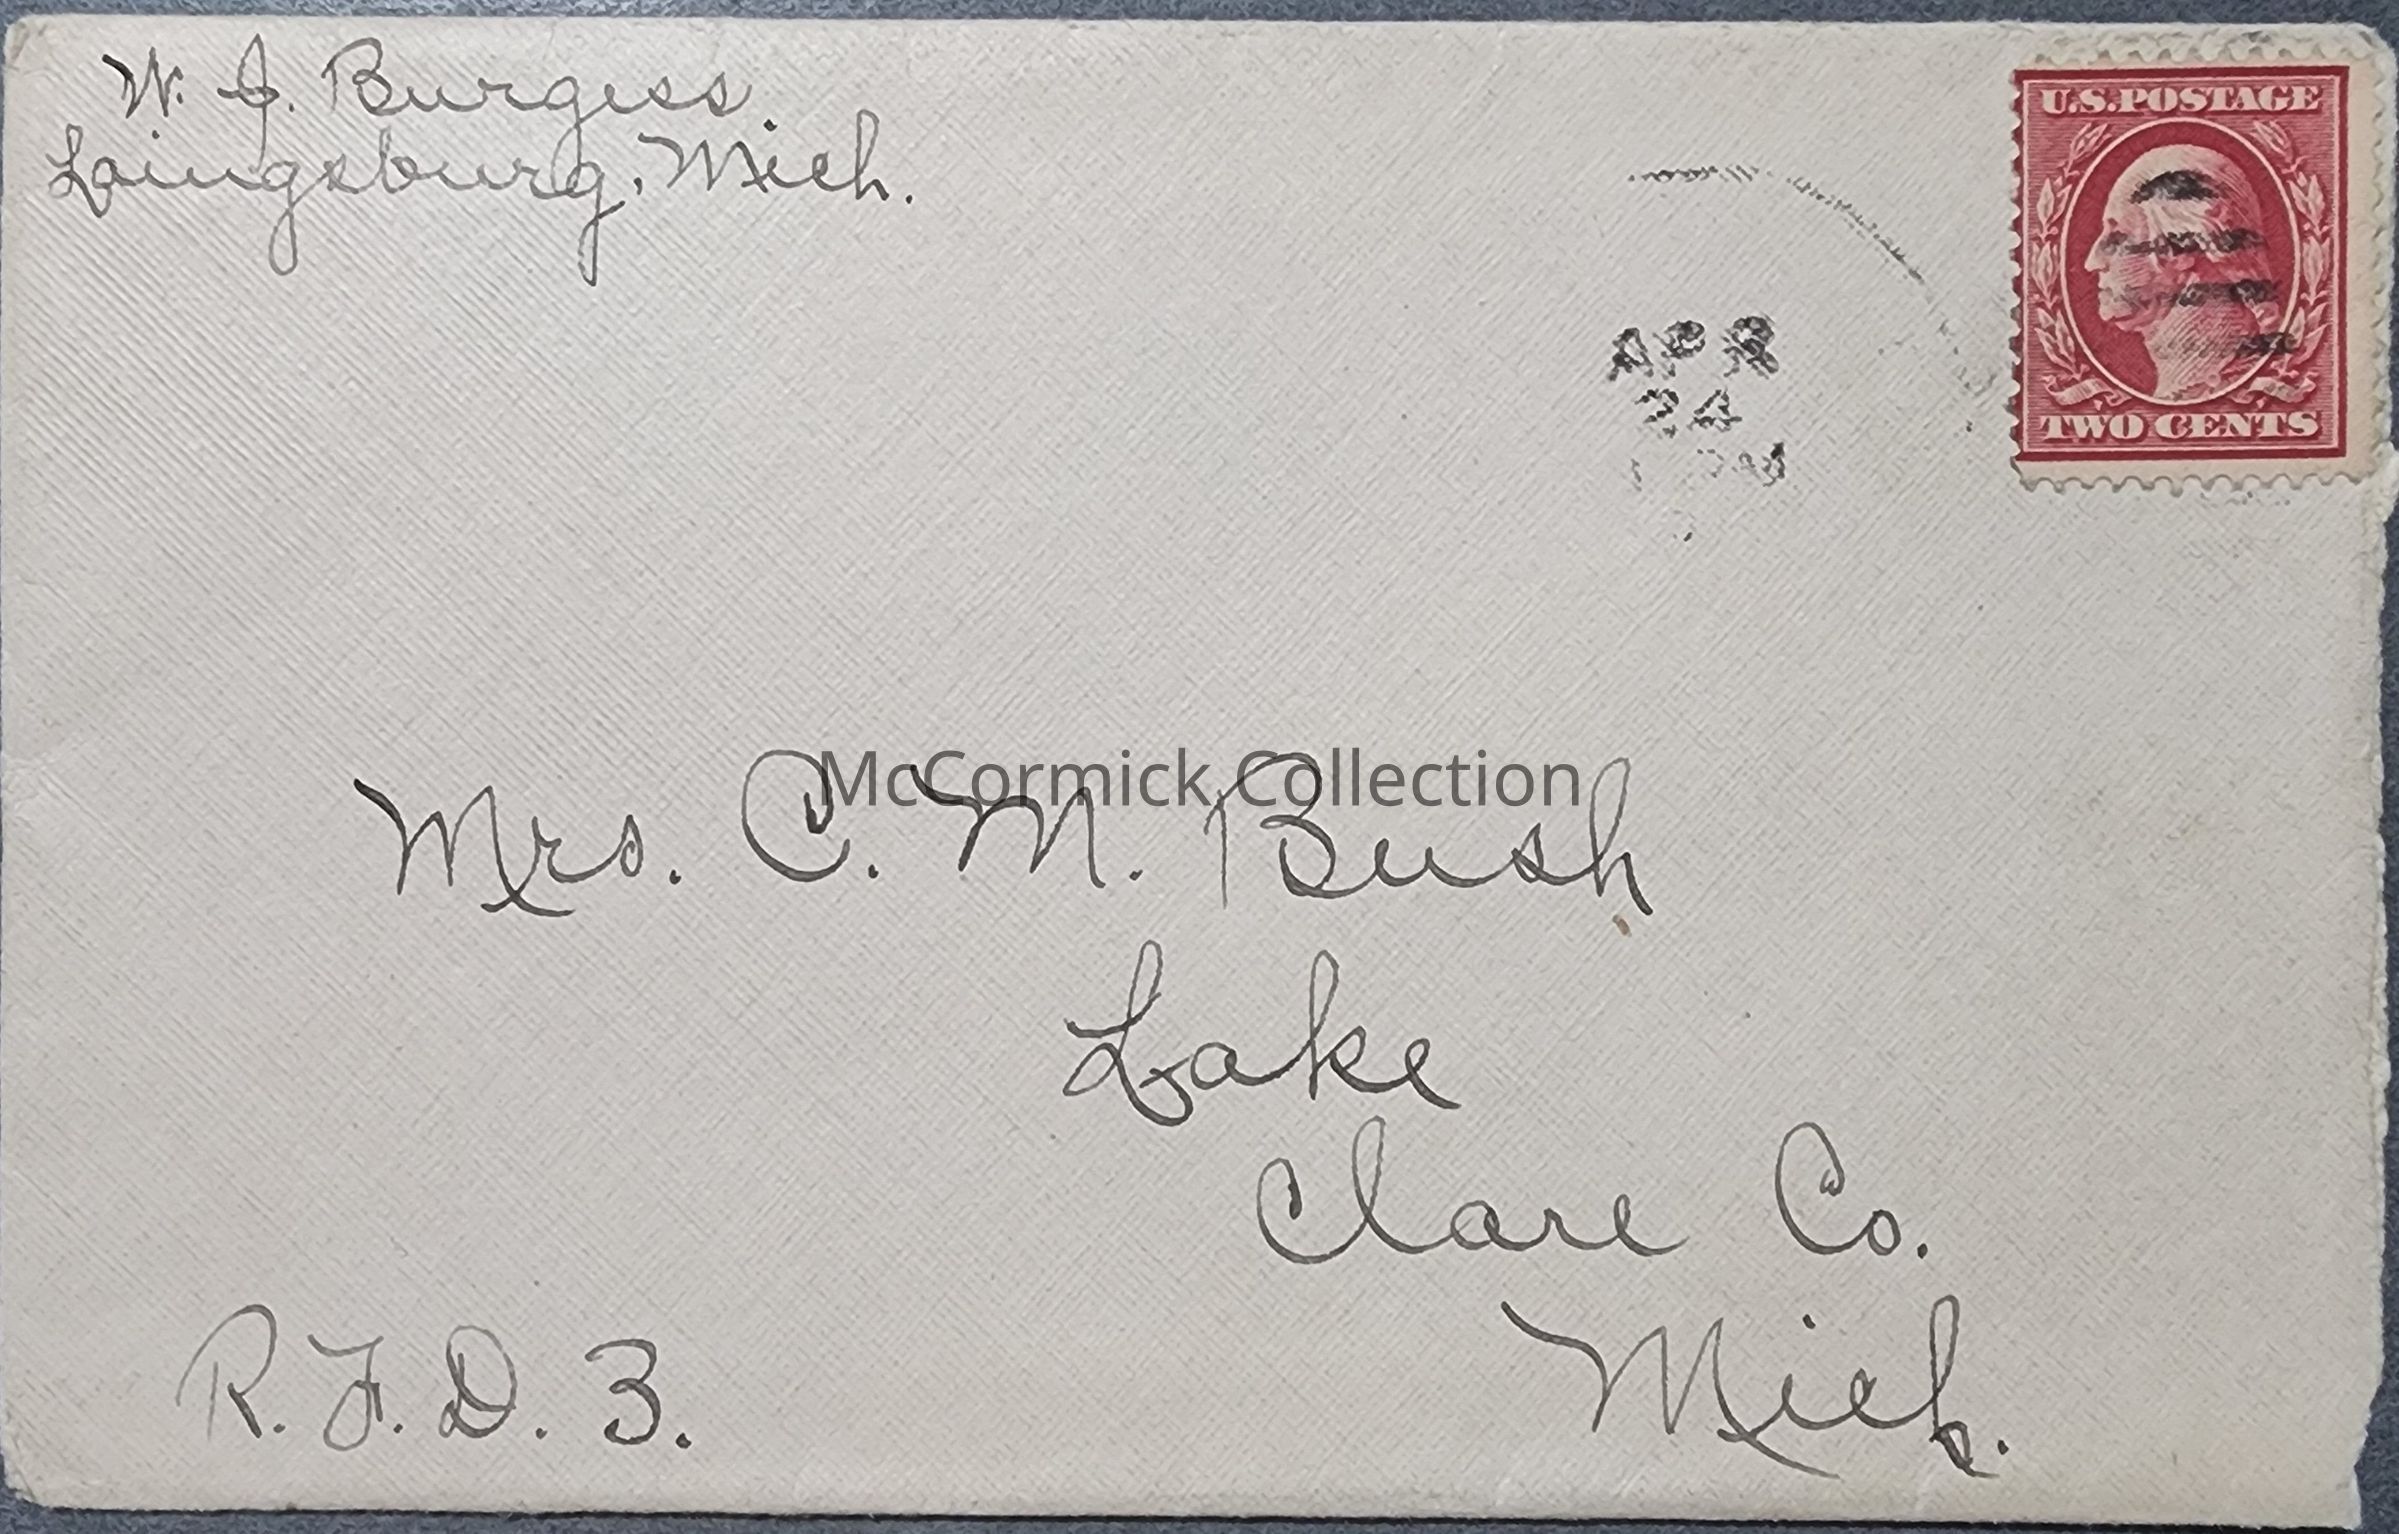 W. J. Burgess.
Laingsburg, Mich.
U.S. POSTAGE
TWO CENTS
APR
24
PM
McCormick Collection
Mrs. C. M. Bush
Lake
Clare Co.
Mich.
R. F. D. 3.